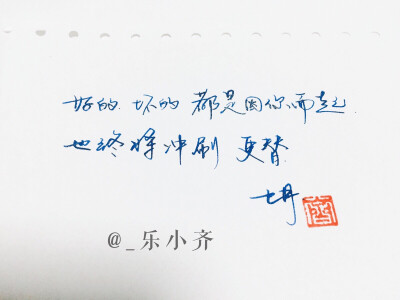 好的 坏的 都是因你而起
也终将冲刷 更替
@_乐小齐